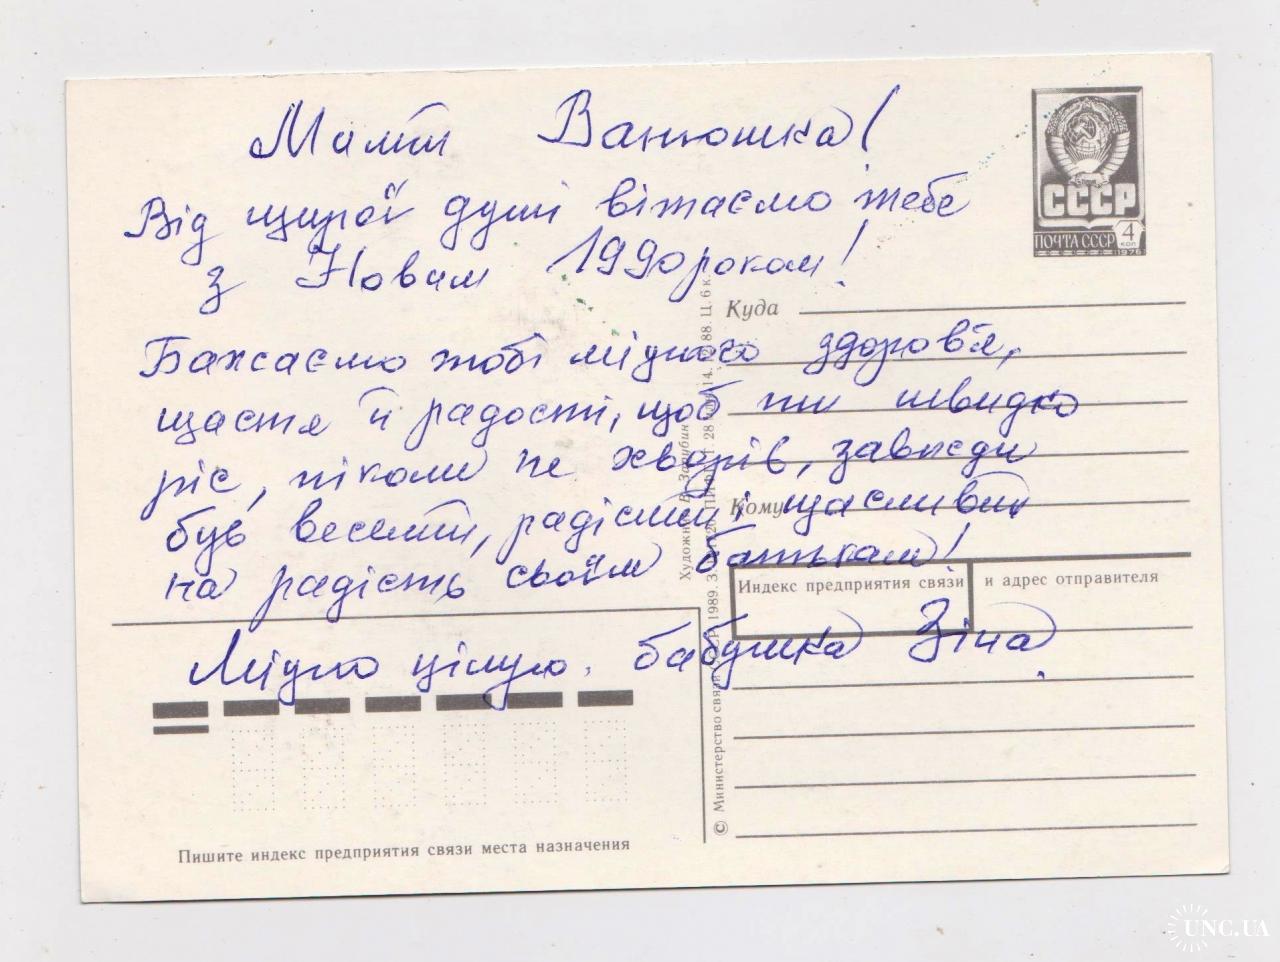 Милий Ванюшка!
Від щирої душі вітаємо тебе
з Новим 1990 роком!
Бажаємо тобі міцного здоров'я,
щастя й радості, щоб ти швидко
ріс, ніколи не хворів, завжди
був веселий, радісний і щасливий
на радість своїм батькам!
Міцно цілую. бабушка Зіна.
СССР
ПОЧТА СССР 4 коп
1976
Куда
Кому
Индекс предприятия связи и адрес отправителя
Пишите индекс предприятия связи места назначения
© Министерство связи СССР, 1989.
Художник В. Зарубин
88. Ц. 6 к.
UNC.UA